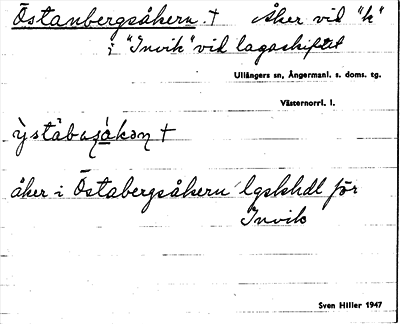 Östanbergsåkern. † Åker vid "k"
i "Invik" vid lagaskiftet
Ullångers sn, Ångermanl. s. doms. tg.
Västernorrl. l.
†
åker i Östabergsåkern lgskhdl för
Invik
Sven Hiller 1947